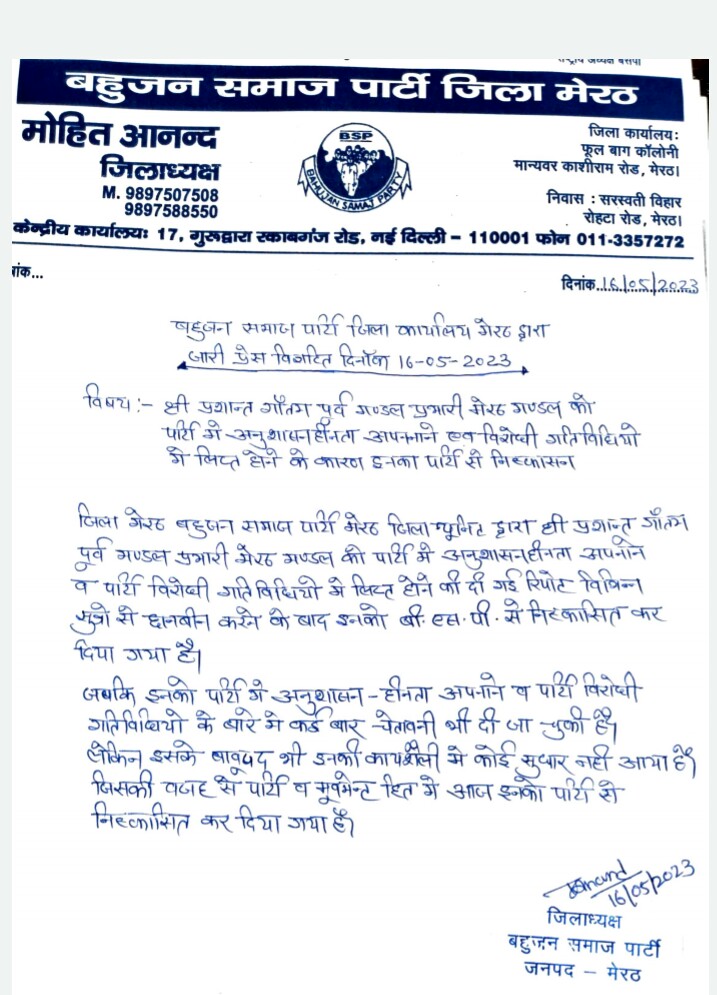 राष्ट्रीय अध्यक्ष बसपा
बहुजन समाज पार्टी जिला मेरठ
मोहित आनन्द
जिलाध्यक्ष
M. 9897507508
9897588550
BSP
BAHUJAN SAMAJ PARTY
जिला कार्यालयः
फूल बाग कॉलोनी
मान्यवर काशीराम रोड, मेरठ।
निवास : सरस्वती विहार
रोहटा रोड, मेरठ।
केन्द्रीय कार्यालयः 17, गुरूद्वारा रकाबगंज रोड, नई दिल्ली – 110001 फोन 011-3357272
ांक...
दिनांक..16/05/2023
बहुजन समाज पार्टी जिला कार्यालय मेरठ द्वारा
जारी प्रेस विज्ञप्ति दिनाँक 16-05-2023
विषय :- श्री प्रशान्त गौतम पूर्व मण्डल प्रभारी मेरठ मण्डल को
पार्टी मे अनुशासनहीनता अपनाने एवं विरोधी गतिविधियो
मे लिप्त होने के कारण इनका पार्टी से निष्कासन
जिला मेरठ बहुजन समाज पार्टी मेरठ जिला यूनिट द्वारा श्री प्रशान्त गौतम
पूर्व मण्डल प्रभारी मेरठ मण्डल को पार्टी मे अनुशासनहीनता अपनाने
व पार्टी विरोधी गतिविधियो मे लिप्त होने की दी गई रिपोट विभिन्न
सुत्रो से छानबीन करने के बाद इनको बी. एस. पी. से निष्कासित कर
दिया गया है।
जबकि इनको पार्टी मे अनुशासन-हीनता अपनाने व पार्टी विरोधी
गतिविधियो के बारे मे कई बार चेतावनी भी दी जा चुकी है।
लेकिन इसके बावूद भी इनकी कार्यशैली मे कोई सुधार नही आया है।
जिसकी वजह से पार्टी व मूवमेन्ट हित मे आज इनको पार्टी से
निष्कासित कर दिया गया है।
16/05/2023
जिलाध्यक्ष
बहुजन समाज पार्टी
जनपद – मेरठ